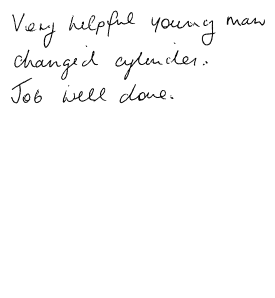 Very helpful young man
changed cylinder.
Job well done.